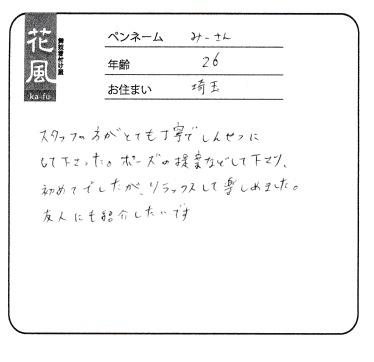 花風
ka-fu
ペンネーム みーさん
年齢 26
お住まい 埼玉
スタッフの方がとても丁寧でしんせつに
して下さった。ポーズの提案などして下さり、
初めてでしたが、リラックスして楽しめました。
友人にも紹介したいです